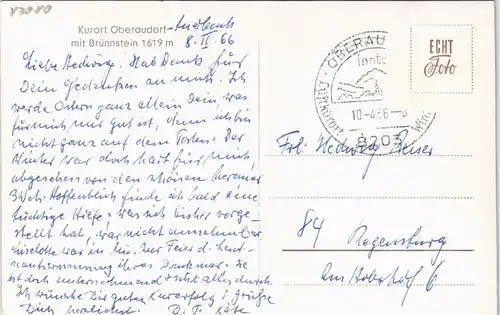 83080
Kurort Oberaudorf-
mit Brünnstein 1619 m
8. II. 66
Liebe Hedwig! Hab Dank für
Dein Gedenken an mich. Ich
werde Ostern ganz allein sein, was
für mich nur gut ist, denn ich bin
nicht ganz auf dem Posten. Der
Winter war doch hart für mich,
abgesehen von den schönen Meraner
3 Woch. Hoffentlich finde ich bald eine
tüchtige Hilfe, was sich bisher vorge-
stellt hat, war nicht annehmbar.
Liselotte war in Mü. zur Feier d.
ihres Sie
ist doch unternehmend + setzt alles durch.
Ich wünsche Dir guten Kurerfolg u. grüße
Dich herzlichst. D. Käte
OBERAU
Luftkurort
10.-4.66-
8203
ECHT
Foto
Frl. Hedwig Beiser
84 Regensburg
Am Hoberhof 6